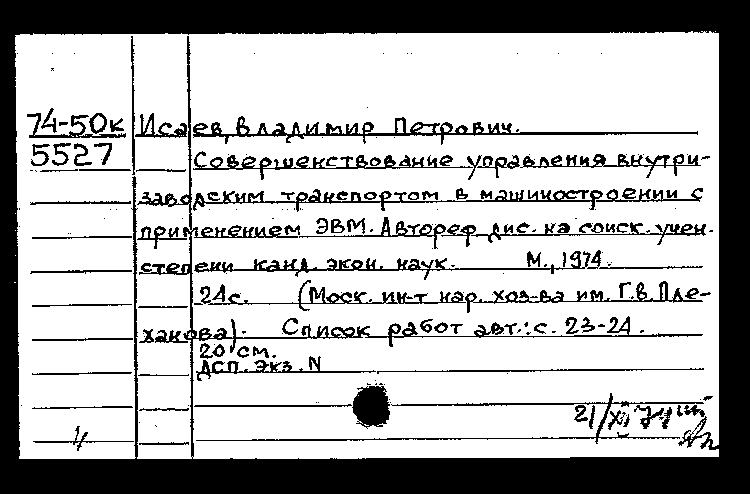 74-50к Исаев, Владимир Петрович.
5527 Совершенствование управления внутри-
заводским транспортом в машиностроении с
применением ЭВМ. Автореф дис. на соиск. учен.
степени канд. экон. наук. М., 1974.
24с. (Моск. ин-т нар. хоз-ва им. Г.В. Пле-
ханова). Список работ авт.: с. 23-24.
20 см.
ДСП. Экз. N
21/XII 74
4